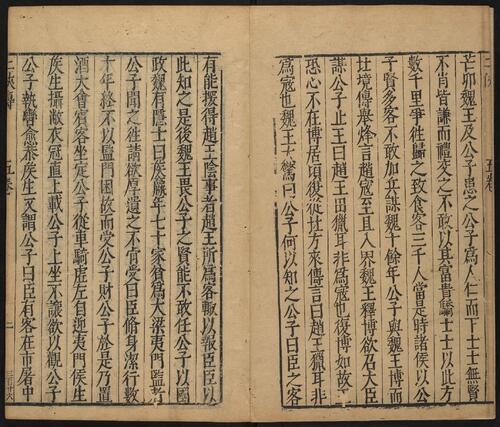 芒卯魏王及公子患之公子為人仁而下士士無賢
不肖皆謙而禮交之不敢以其富貴驕士士以此方
數千里爭徃歸之致食客三千人當是時諸侯以公
子賢多客不敢加兵謀魏十餘年公子與魏王博而
北境傳舉烽言趙寇至且入界魏王釋博欲召大臣
謀公子止王曰趙王田獵耳非為寇也復博如故王
恐心不在博居頃復從北方來傳言曰趙王獵耳非
為寇也魏王大驚曰公子何以知之公子曰臣之客
有能探得趙王陰事者趙王所為客輒以報臣臣以
此知之是後魏王畏公子之賢能不敢任公子以國
政魏有隱士曰侯嬴年七十家貧為大梁夷門監者
公子聞之徃請欲厚遺之不肯受曰臣脩身潔行數
十年終不以監門困故而受公子財公子於是乃置
酒大會賓客坐定公子從車騎虛左自迎夷門侯生
侯生攝敝衣冠直上載公子上坐不讓欲以觀公子
公子執轡愈恭侯生又謂公子曰臣有客在市屠中
二俠傳
五卷
二